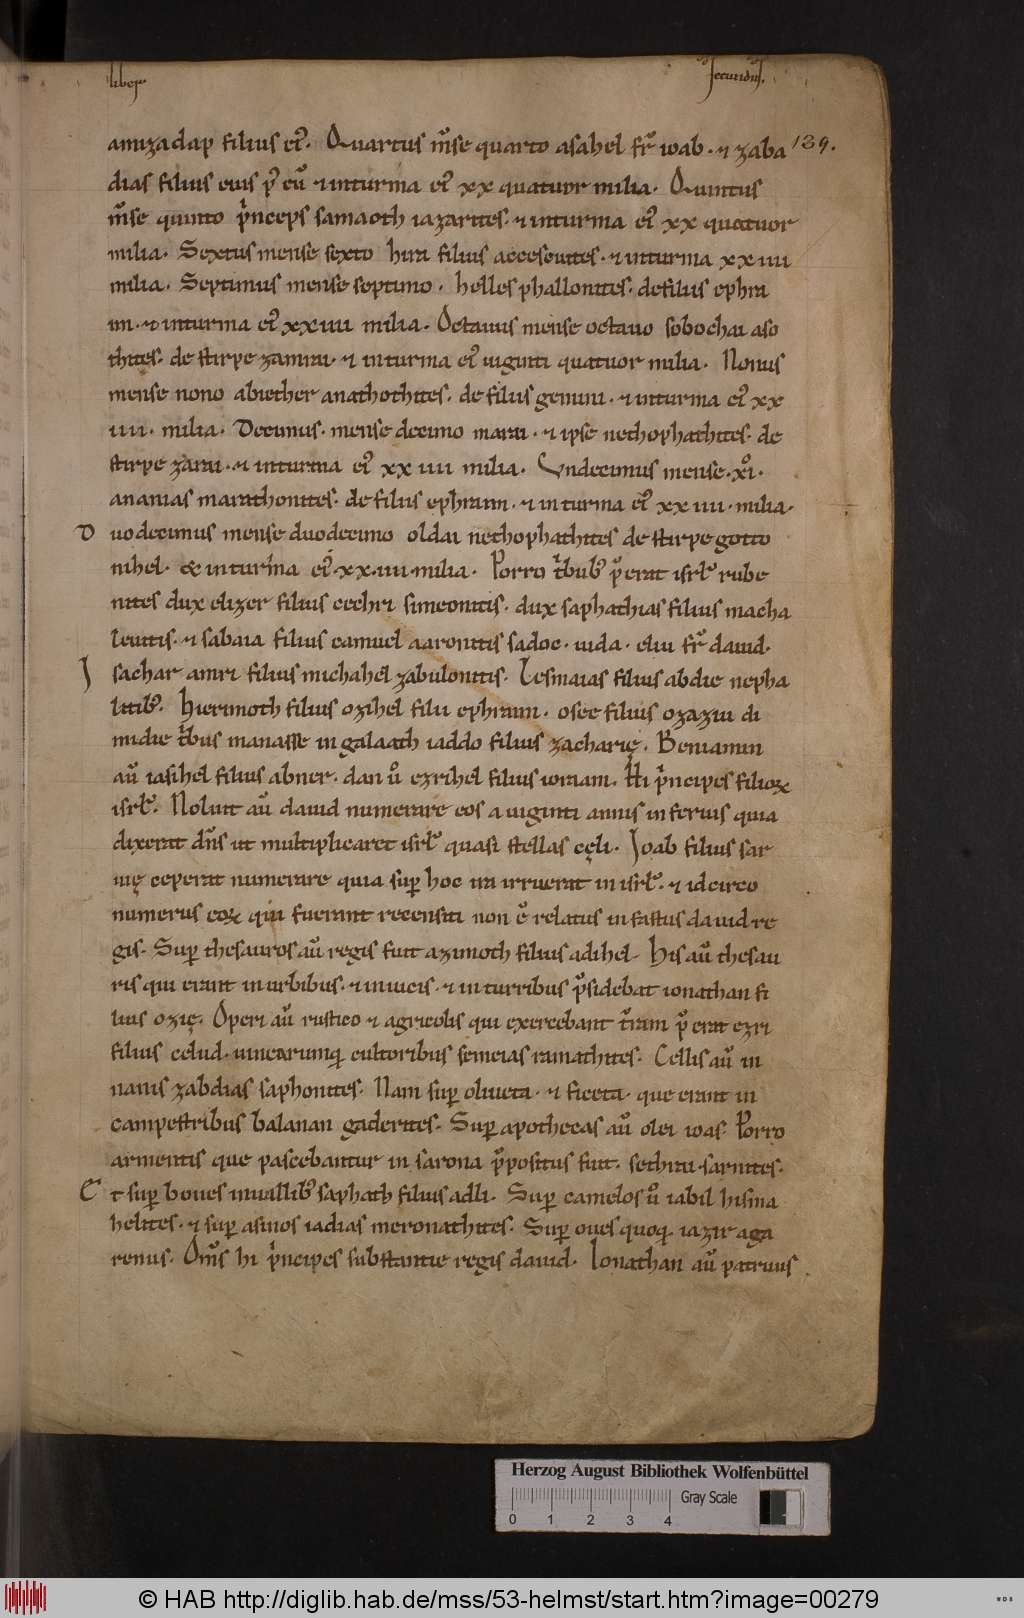 liber secundus.
amizadap filius ei᷒. Quartus m̅se quarto asahel fr̅ ioab. ⁊ zaba 139.
dias filius eius p᷒ eu̅ ⁊ in turma ei᷒ xx quatuor milia. Quintus
m̅se quinto pͥnceps samaoth iazarites. ⁊ in turma ei᷒ xx quatuor
milia. Sextus mense sexto hira filius acceseuites. ⁊ in turma xx iiii
milia. Septimus mense septimo. helles phallonites. de filiis ephra
im. ⁊ in turma ei᷒ xxiiii milia. Octauus mense octauo sobochai aso
thites. de stirpe zamrai. ⁊ in turma ei᷒ uiginti quatuor milia. Nonus
mense nono abiether anathothites. de filiis gemini. ⁊ in turma ei᷒ xx
iiii. milia. Decimus. mense decimo marai. ⁊ ipse nethophathites. de
stirpe zarai. ⁊ in turma ei᷒ xx iiii milia. Undecimus mense. xͦi.
ananias marathonites. de filiis ephraim. ⁊ in turma ei᷒ xx iiii. milia.
Duodecimus mense duodecimo oldai nethophathites de stirpe gotto
nihel. & in turma ei᷒ xx. iiii. milia. Porro tͥbub᷒ p̅erat isrl̅ rube
nites dux elizer filius cechri simeonitis. dux saphathias filius macha
leuitis. ⁊ sabaia filius camuel aaronitis sadoc. iuda. eliu fr̅ dauid.
Isachar amri filius michahel zabulonitis. Iesmaias filius abdie nepha
litib᷒. hierimoth filius ozihel filii ephraim. osee filius ozaziu di
midie tͥbus manasse in galaath iaddo filius zacharię. Beniamin
au̅ iasihel filius abner. dan uͦ ezrihel filius ioriam. Hi pͥncipes filioꝝ
isrl̅. Noluit au̅ dauid numerare eos a uiginti annis inferius quia
dixerat dn̅s ut multiplicaret isrl̅ quasi stellas cęli. Ioab filius sar
uię ceperat numerare quia sup̱ hoc ira irruerat in isrl̅. ⁊ idcirco
numerus eoꝝ qui fuerant recensiti non e̅ relatus in fastus dauid re
gis. Sup̱ thesauros au̅ regis fuit azimoth filius adihel. His au̅ thesau
ris qui erant in urbibus. ⁊ in uicis. ⁊ in turribus p̅sidebat ionathan fi
lius ozię. Operi au̅ rustico ⁊ agricolis qui exercebant t̅ram p̅erat ezri
filius celud. uinearumq; cultoribus semeias ramathites. Cellis au̅ ui
nariis zabdias saphonites. Nam sup̱ oliueta. ⁊ ficeta. que erant in
campestribus balanan gaderites. Sup̱ apothecas au̅ olei ioas. Porro
armentis que pascebantur in sarona p̅positus fuit. sethrai. sarnites.
Et sup̱ boues in uallib᷒ saphath filius adli. Sup̱ camelos uͦ iabil hisma
helites. ⁊ sup̱ asinos iadias meronathites. Sup̱ oues quoq; iazir aga
renus. Om̅s hi pͥncipes substantie regis dauid. Ionathan au̅ patruus
Herzog August Bibliothek Wolfenbüttel
Gray Scale
0 1 2 3 4
© HAB http://diglib.hab.de/mss/53-helmst/start.htm?image=00279